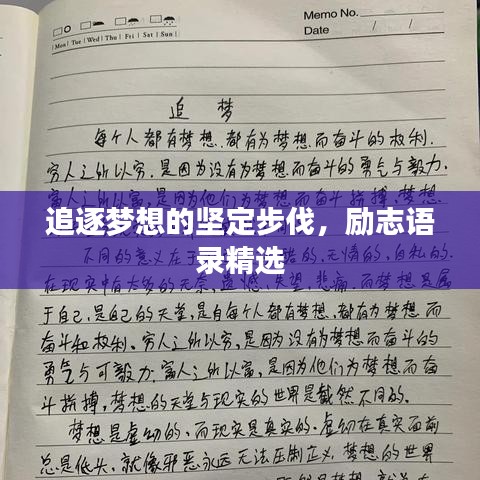 Memo No.
Mon Tue Wed Thu Fri Sat Sun
Date
追 梦
每个人都有梦想.都有为梦想而奋斗的权利.
穷人之所以穷.是因为没有为梦想而奋斗的勇气与毅力.
富人之所以富,是因为他们为梦想而奋斗拼搏,梦想
追逐梦想的坚定步伐，励志语
录精选
不同的意义在于 的、无情的,自私的.
在现实中有太多的无奈,遗憾,失望,悲痛.而梦想是属
于自己,是自己的天堂,是自每个人都有梦想,都有为梦想而
奋斗和权利.穷人之所以穷,是因为没有为梦想而奋斗的
勇气与可毅力.富人之所以富,是因为他们为梦想而奋
斗拼搏,梦想的天堂与现实的世界是截然不同的.
梦想是虚幻的,而现实是真实的.虚幻在真实面前
总是低头.就像邪恶永远无法压制正义.梦想的世界